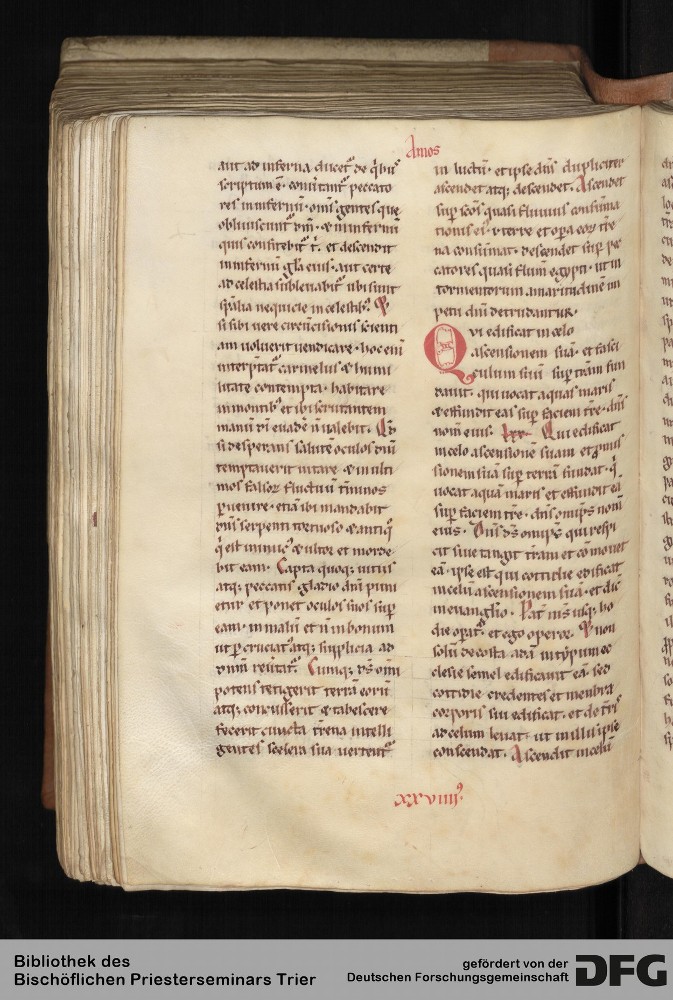 Amos
aut ad inferna ducet᷒ de q̍bꝰ
scriptum ē· conu̍tant᷒ peccato
res in infernū· om̄s gentes que
obliuiscunt᷒ dm̄· & in inferno
quis confitebit᷒ t̍· et descendit
in infernū gl̄a eius· aut certe
ad celestia subleuabit᷒ ubi sunt
sp̄alia nequicie in celestibꝰ· Qͥ
si sibi uere circūcisionis scienti
am uoluerit uendicare· hoc eni
interp̄tat᷒ carmelus & humi
litate contempta· habitare
in montibꝰ et ibi scrutantem
manū dn̄i euadē n̄ ualebit· Qd̄
si desperans salutē oculos dn̄i
temptauerit uitare & in ulti
mos falsoꝝ fluctuū t̍minos
ꝑuenire· etiā ibi mandabit
dn̄s serpenti tortuoso & antiqͦ
q̍ est inimicꝰ & ultor et morde
bit eam· Capta quoqꝫ uitiis
atqꝫ peccatis gladio dn̄i puni
etur et ponet oculos suos suꝑ
eam· in malū et n̄ in bonum
ut ꝑ cruciatꝰ atqꝫ supplicia ad
dn̄um reu̍tat᷒· Cumqꝫ ds̄ om̄i
potens tetigerit terrā eorū
atqꝫ concusserit & tabescere
fecerit cuncta t̍rena intelli
gentes scelera sua uertent᷒
in luctū· et ipse dn̄s dupliciter
ascendet atqꝫ descendet· Ascendet
suꝑ sc̄os quasi fluuius consūma
tionis ei· ut terre et opera eoꝝ t̍re
na consūmat· descendet suꝑ pec
catores quasi flum̄ egypti· ut in
tormentorum amaritudinē im
petu dn̄i detrudantur·
Qui edificat in celo
ascensionem suā· et fasci
culum suū suꝑ t̍ram fun
dauit· qui uocat aquas maris
& effundit eas suꝑ faciem t̍re· dn̄s
nom̄ eius· lxx· Qui edificat
in celo ascensionē suam et ꝓmis
sionem suā suꝑ terrā fundat· q̍
uocat aquā maris et effundit eā
suꝑ faciem t̍re· dn̄s omip̄s nom̄
eius· Dn̄s ds̄ omip̄s qui respi
cit siue tangit t̍ram et cōmouet
eā· ipse est qui cottidie edificat
in celū ascensionem suā· et dic̄
in euangl̄io· Pat̍ ms̄ usqꝫ ho
die opat᷒· et ego operor· Et non
solū de costa adā in typum ec
clesie semel edificauit eā· sed
cottidie credentes et menbra
corporis sui edificat· et de t̍ris
ad celum leuat· ut in illis ipse
conscendat· Ascendit in celū
xxviiiiꝰ·
Bibliothek des
Bischöflichen Priesterseminars Trier
gefördert von der
Deutschen Forschungsgemeinschaft
DFG